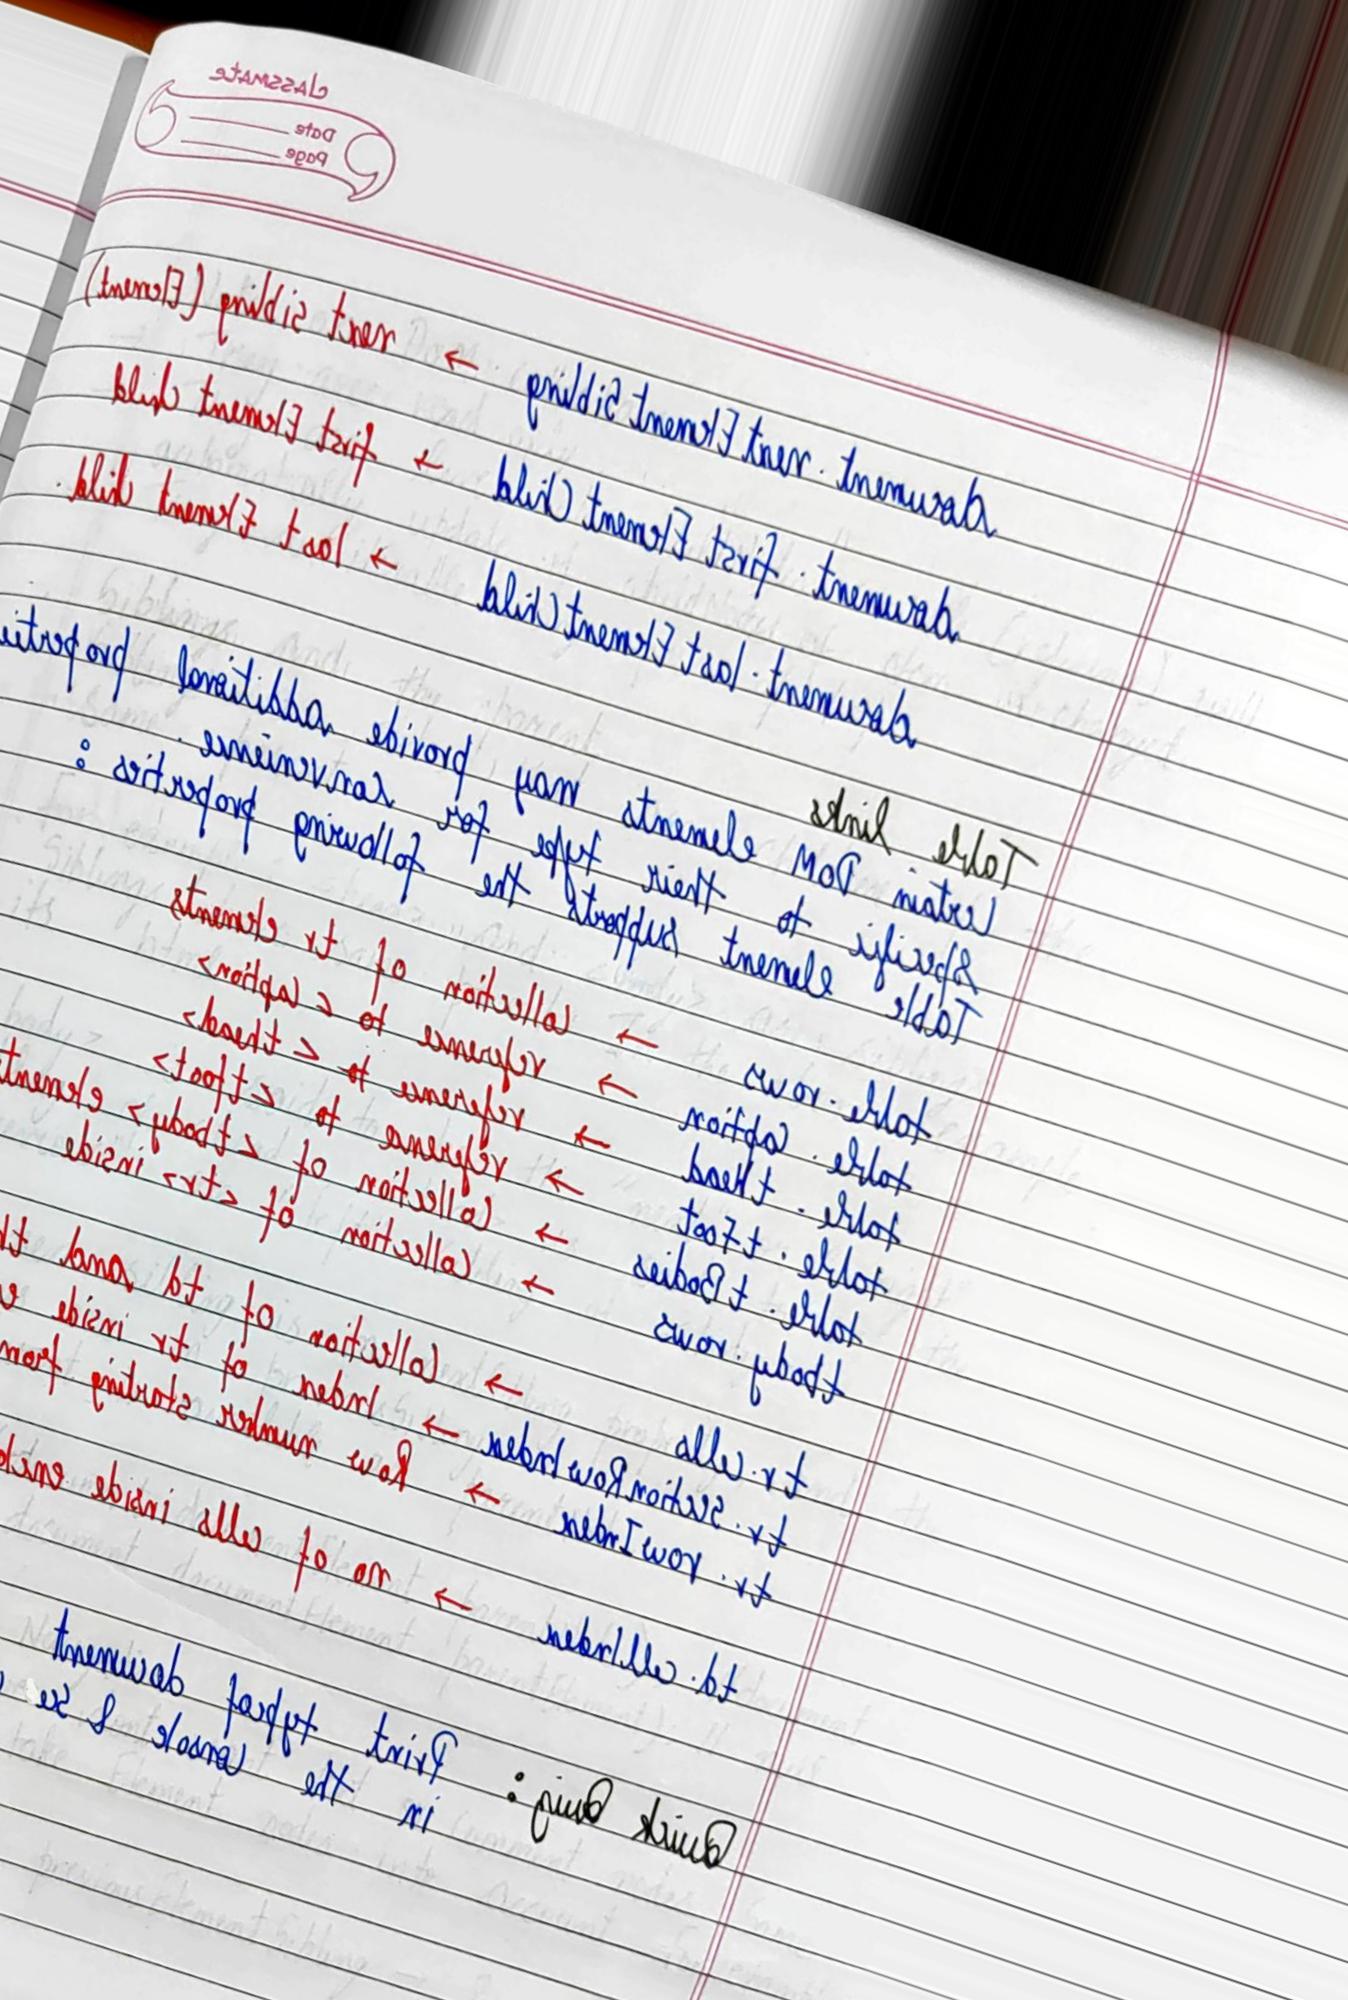 classmate
Date
Page
document.nextElementSibling → next sibling (Element)
document.firstElementChild → first Element child
document.lastElementChild → last Element child.
Table links
Certain DOM elements may provide additional propertie
Specific to their type for convenience.
Table element supports the following properties :
table.rows → Collection of tr elements
table.caption → reference to <caption>
table.tHead → reference to <thead>
table.tFoot → reference to <tfoot>
table.tBodies → Collection of <tbody> element
tbody.rows → Collection of <tr> inside
tr.cells → Collection of td and th
tr.sectionRowIndex → Index of tr inside
tr.rowIndex → Row number starting from
td.cellIndex → no of cells inside
Quick Quiz : Print typeof document
in the console & see